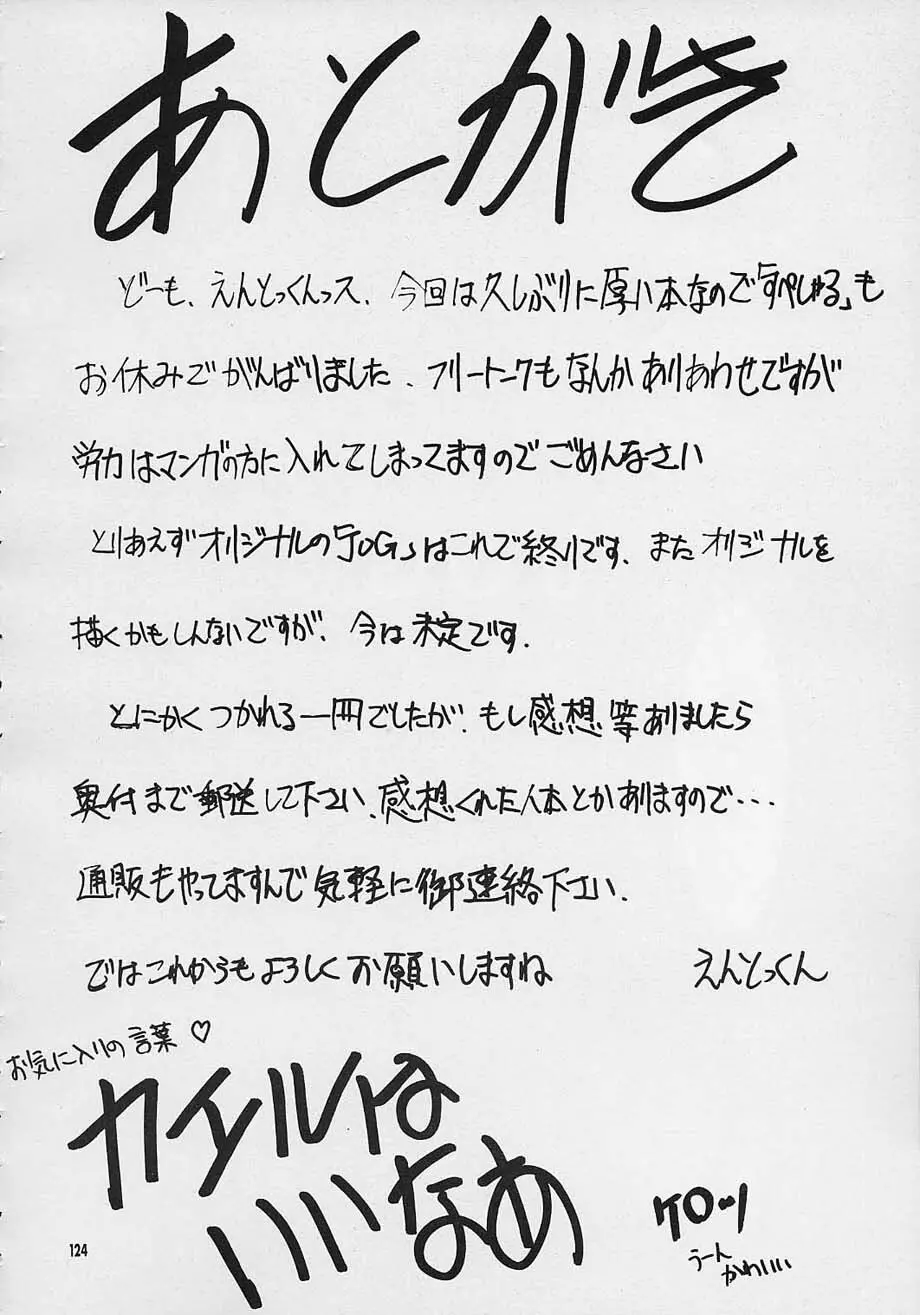 あとがき
どーも、えんとっくんっス、今回は久しぶりに厚い本なので「すぺしゃる」も
お休みでがんばりました、フリートークもなんかありあわせですが
労力はマンガの方に入れてしまってますのでごめんなさい
とりあえずオリジナルの「JOG」はこれで終りです、またオリジナルを
描くかもしんないですが、今は未定です、
とにかくつかれる一冊でしたが、もし感想等ありましたら
奥付まで郵送して下さい、感想くれた人本とかありますので・・・
通販もやってますんで気軽に御連絡下さい、
ではこれからもよろしくお願いしますね
えんとっくん
お気に入りの言葉♡
カイルは
いいなあ
ケロッ
うーん
かわいい
124